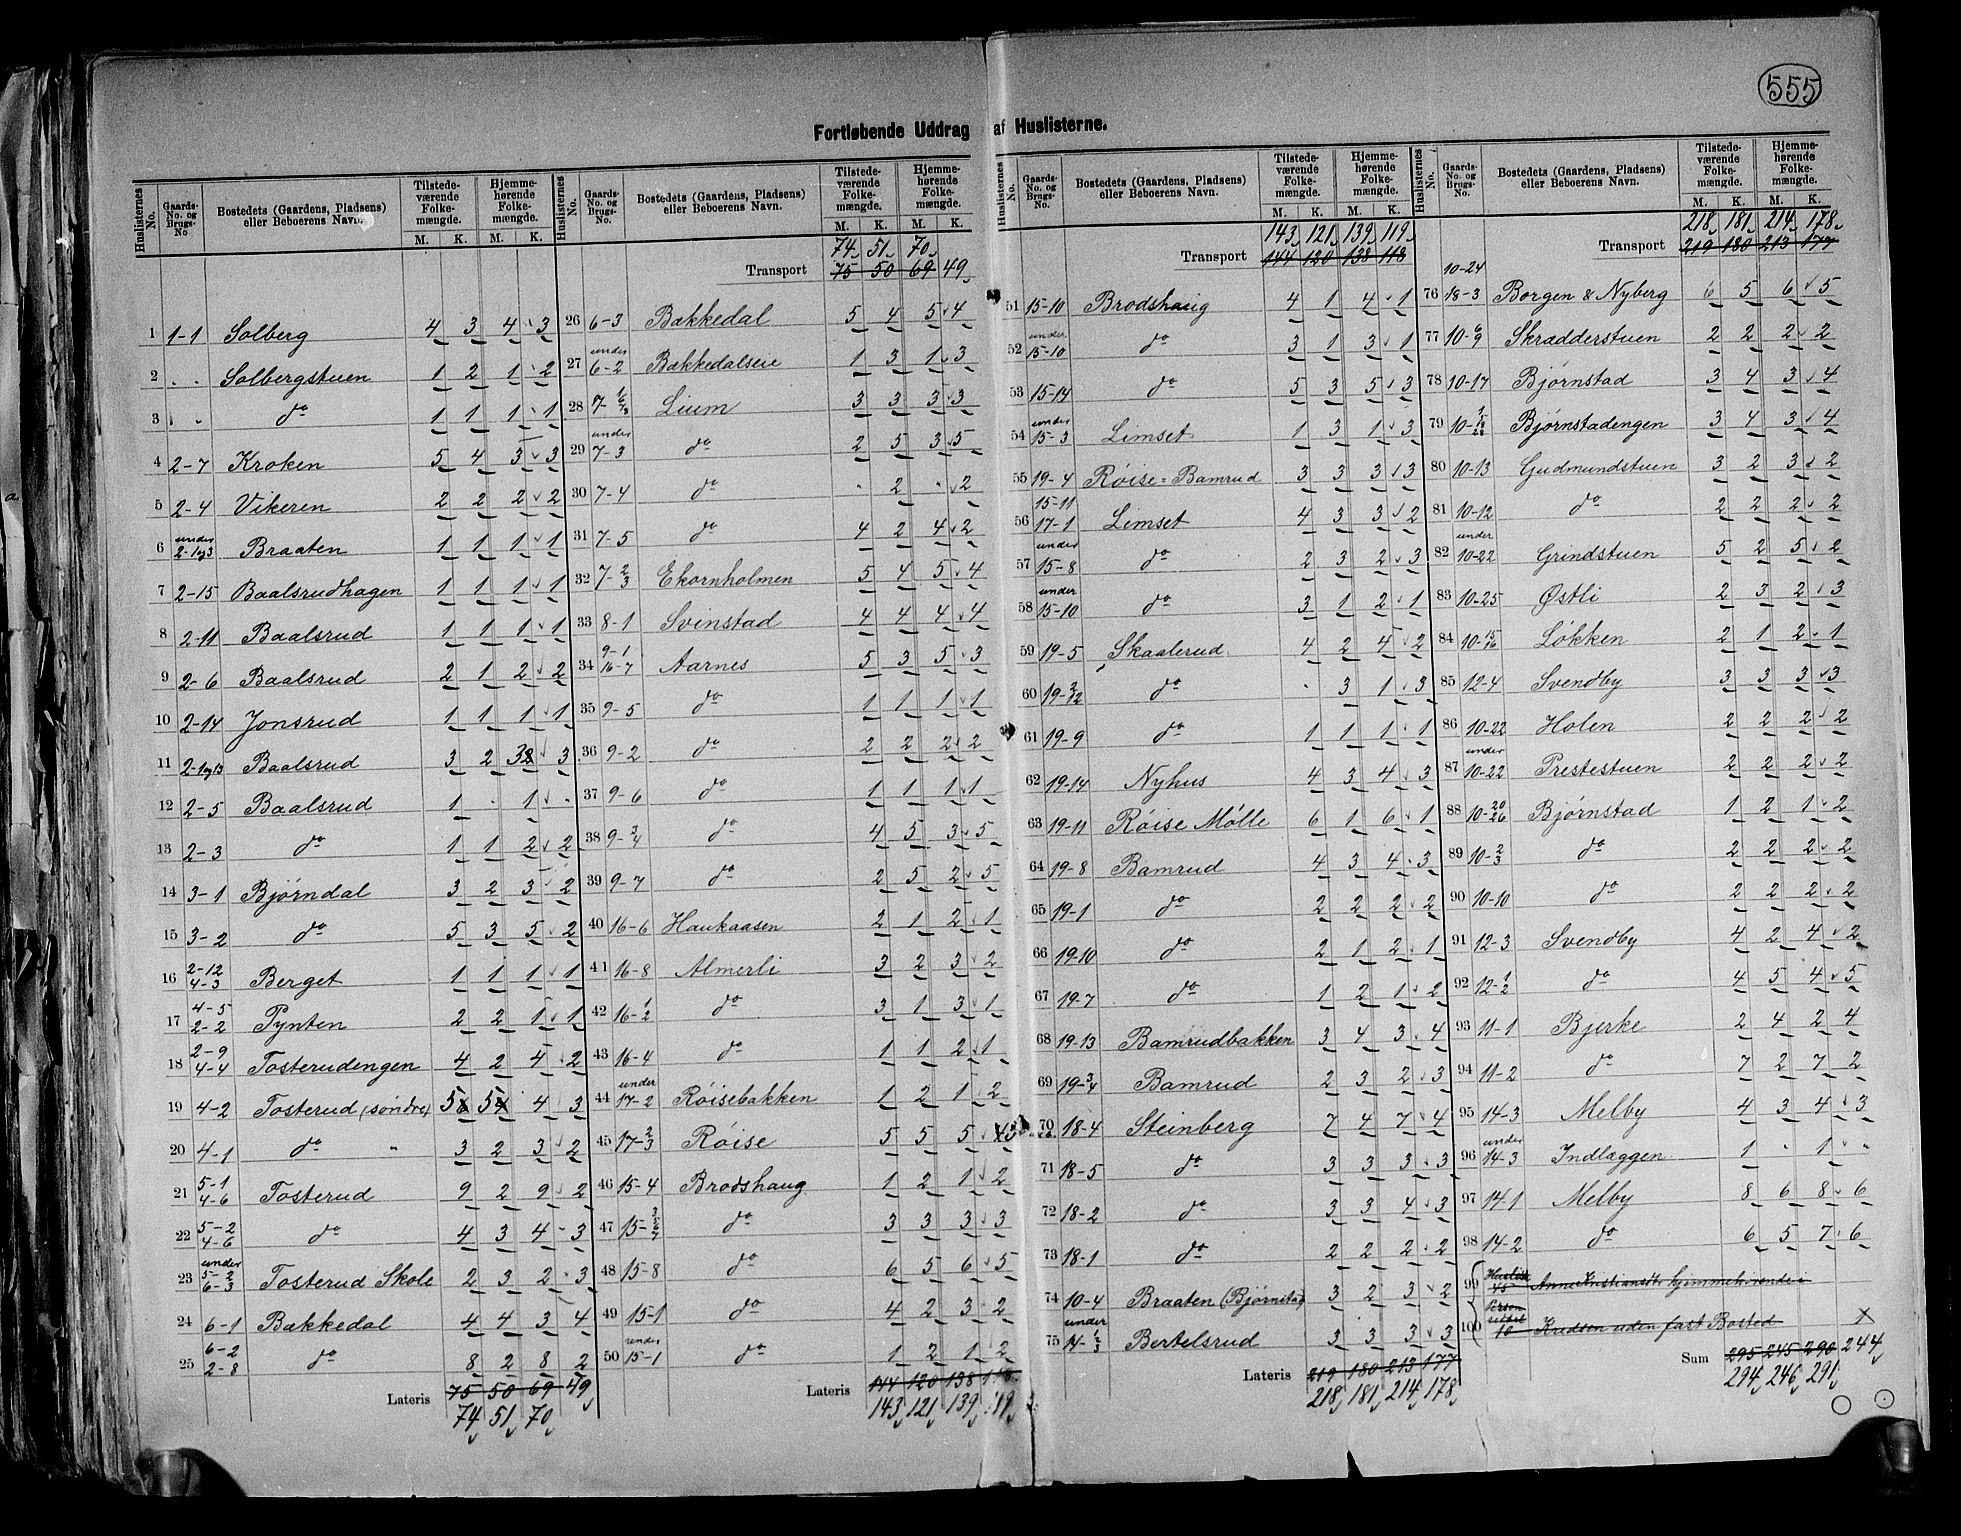 555
Fortløbende Uddrag af Huslisterne.
Huslisternes No. Gaards-No. og Brugs-No. Bostedets (Gaardens, Pladsens) eller Beboerens Navn. Tilstedeværende Folkemængde. M. K. Hjemmehørende Folkemængde. M. K.
1 1-1 Solberg 4 3 4 3
2 . . Solbergstuen 1 2 1 2
3 . . do 1 1 1 1
4 2-7 Kroken 5 4 3 3
5 2-4 Vikeren 2 2 2 2
6 under 2-1og3 Braaten 1 1 1 1
7 2-15 Baalsrudhagen 1 1 1 1
8 2-11 Baalsrud 1 1 1 1
9 2-6 Baalsrud 2 1 2 2
10 2-14 Jonsrud 1 1 1 1
11 2-1og13 Baalsrud 3 2 3 3
12 2-5 Baalsrud 1 . 1 .
13 2-3 do 1 1 2 2
14 3-1 Bjørndal 3 2 3 2
15 3-2 do 5 3 5 2
16 2-12 4-3 Berget 1 1 1 1
17 4-5 2-2 Pynten 2 2 1 1
18 2-9 4-4 Tosterudengen 4 2 4 2
19 4-2 Tosterud (søndre) 5 5 4 3
20 4-1 do " 3 2 3 2
21 5-1 4-6 Tosterud 9 2 9 2
22 5-2 4-6 do 4 3 4 3
23 under 5-2 6-3 Tosterud Skole 2 3 2 3
24 6-1 Bækkedal 4 4 3 4
25 6-2 2-8 do 8 2 8 2
Lateris 75 50 69 49
74 51 70
Huslisternes No. Gaards-No. og Brugs-No. Bostedets (Gaardens, Pladsens) eller Beboerens Navn. Tilstedeværende Folkemængde. M. K. Hjemmehørende Folkemængde. M. K.
74 51 70
Transport 75 50 69 49
26 6-3 Bækkedal 5 4 5 4
27 under 6-2 Bækkedalseie 1 3 1 3
28 7-1/6/8 Lium 3 3 3 3
29 under 7-3 do 2 5 3 5
30 7-4 do . 2 . 2
31 7-5 do 4 2 4 2
32 7-2/3 Ekornholmen 5 4 5 4
33 8-1 Svinstad 4 4 4 4
34 9-1 16-7 Aarnes 5 3 5 3
35 9-5 do 1 1 1 1
36 9-2 do 2 2 2 2
37 9-6 do 1 1 1 1
38 9-3/4 do 4 5 3 5
39 9-7 do 2 5 2 5
40 16-6 Haukaasen 2 1 2 1
41 16-8 Almerli 3 2 3 2
42 16-1/2 do 3 1 3 1
43 16-4 do 1 1 2 1
44 under 17-2 Røisebakken 1 2 1 2
45 17-2/3 Røise 5 5 5 3
46 15-4 Brodshaug 1 2 1 2
47 15- do 3 3 3 3
48 15-8 do 6 5 6 5
49 15-1 do 4 2 3 2
50 under 15-1 do 1 2 1 2
Lateris 144 120 138 118
143 121 139 119
Huslisternes No. Gaards-No. og Brugs-No. Bostedets (Gaardens, Pladsens) eller Beboerens Navn. Tilstedeværende Folkemængde. M. K. Hjemmehørende Folkemængde. M. K.
143 121 139 119
Transport 144 120 138 118
51 15-10 Brodshaug 4 1 4 1
52 under 15-10 do 3 1 3 1
53 15-14 do 5 3 5 3
54 under 15-3 Limset 1 3 1 3
55 19-4 Røise=Bamrud 3 3 3 3
56 15-11 17-1 Limset 4 3 3 2
57 under 15-8 do 2 3 2 3
58 under 15-10 do 3 1 2 1
59 19-5 Skaalerud 4 2 4 2
60 19-2/12 do . 3 1 3
61 19-9 do 1 1 1 1
62 19-14 Nyhus 4 3 4 3
63 19-11 Røise Mølle 6 1 6 1
64 19-8 Bamrud 4 3 4 3
65 19-1 do 2 2 2 2
66 19-10 do 2 1 2 1
67 19-7 do 1 2 1 2
68 19-13 Bamrudbakken 3 4 3 4
69 19-3/4 Bamrud 2 3 2 3
70 18-4 Steinberg 7 4 7 4
71 18-5 do 3 3 3 3
72 18-2 do 3 3 4 3
73 18-1 do 2 2 2 2
74 10-4 Braaten (Bjørnstad) 3 2 3 2
75 under 14-1/3 Bertelsrud 3 3 3 3
Lateris 219 180 213 177
218 181 214 178
Huslisternes No. Gaards-No. og Brugs-No. Bostedets (Gaardens, Pladsens) eller Beboerens Navn. Tilstedeværende Folkemængde. M. K. Hjemmehørende Folkemængde. M. K.
218 181 214 178
Transport 219 180 213 177
76 10-24 18-3 Borgen & Nyberg 6 5 6 5
77 10-6/9 Skrædderstuen 2 2 2 2
78 10-17 Bjørnstad 3 4 3 4
79 10- Bjørnstadengen 3 4 3 4
80 10-13 Gudmundstuen 3 2 3 2
81 10-12 do 2 2 2 2
82 under 10-22 Grindstuen 5 2 5 2
83 10-25 Østli 2 3 2 3
84 10-15/16 Løkken 2 1 2 1
85 12-4 Svendby 3 3 3 3
86 10-22 Holen 2 2 2 2
87 under 10-22 Prestestuen 2 2 2 2
88 10-20/26 Bjørnstad 1 2 1 2
89 10-2/3 do 2 2 2 2
90 10-10 do 2 2 2 2
91 12-3 Svendby 4 2 4 2
92 12-1/2 do 4 5 4 5
93 11-1 Bjerke 2 4 2 4
94 11-2 do 7 2 7 2
95 14-3 Melby 4 3 4 3
96 under 14-3 Indlæggen 1 . 1 "
97 14-1 Melby 8 6 8 6
98 14-2 do 6 5 7 6
99 Husliste 45 Anne Kristiansdtr hjemmehørende i
100 Person 10 Knudsen uden fast Bosted X
Sum 295 245 290 244
294 246 291